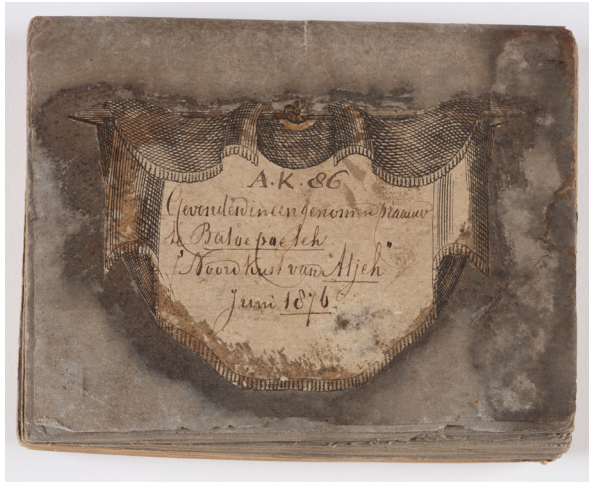 A.K. 86
Gevonden in een genomen praauw
te Batoe poeteh
Noord kust van "Atjeh"
Juni 1876.